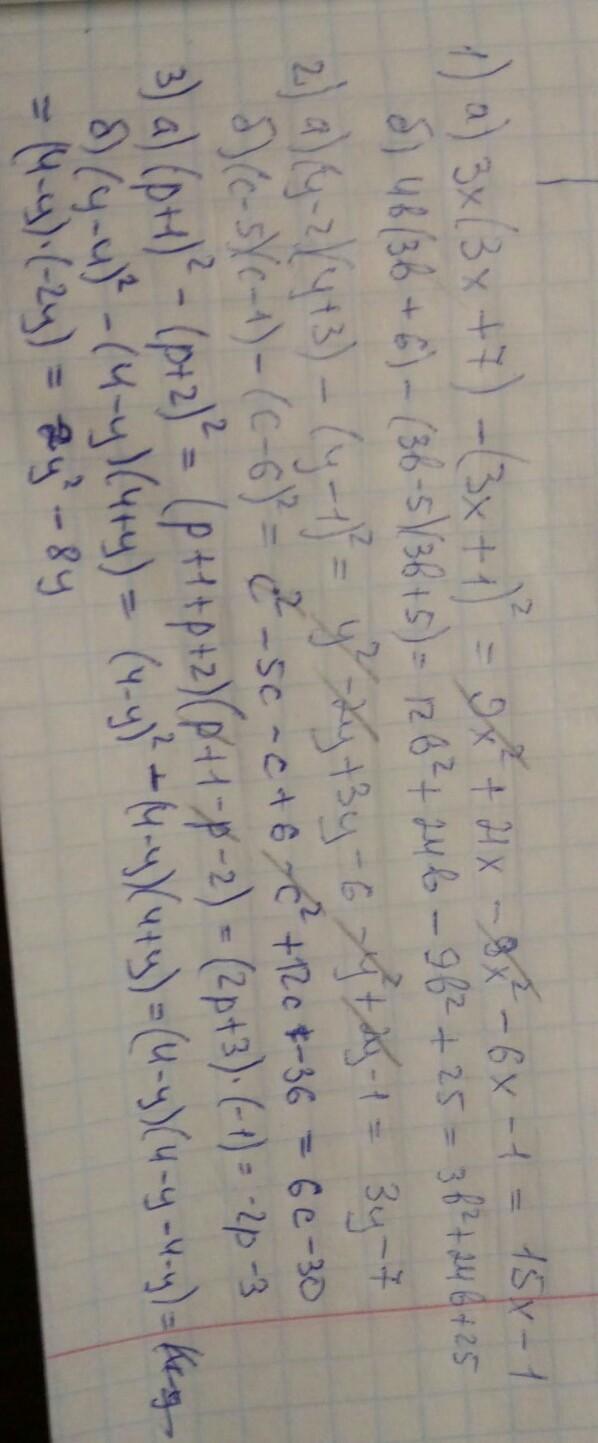 1) а) 3x(3x+7) - (3x+1)² = 9x² + 21x - 9x² - 6x - 1 = 15x - 1
б) 4b(3b+6) - (3b-5)(3b+5) = 12b² + 24b - 9b² + 25 = 3b² + 24b + 25
2) а) (y-2)(y+3) - (y-1)² = y² - 2y + 3y - 6 - y² + 2y - 1 = 3y - 7
б) (c-5)(c-1) - (c-6)² = c² - 5c - c + 6 - c² + 12c - 36 = 6c - 30
3) а) (p+1)² - (p+2)² = (p+1+p+2)(p+1-p-2) = (2p+3)·(-1) = -2p - 3
б) (y-4)² - (4-y)(4+y) = (4-y)² - (4-y)(4+y) = (4-y)(4-y-4-y) =
= (4-y)·(-2y) = 2y² - 8y